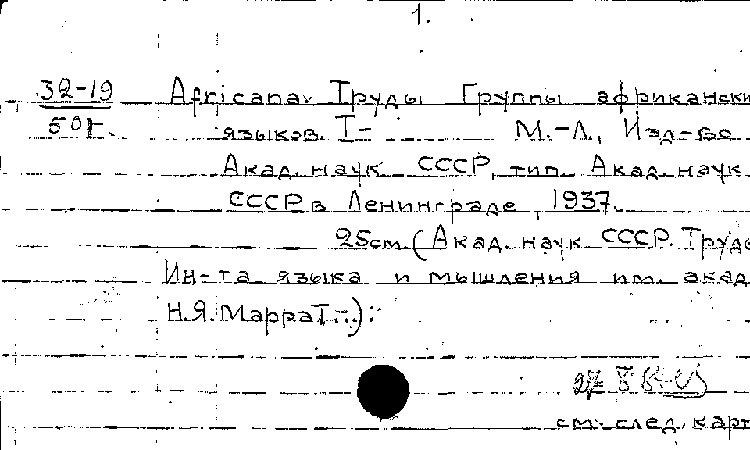 1.
32-19 Africana. Труды Группы африкански
50г. языков. I- М.-Л., Изд-во
Акад. наук СССР, тип. Акад. наук
СССР в Ленинграде, 1937.
25см. (Акад. наук СССР. Труды
Ин-та языка и мышления им. акад.
Н.Я. Марра I-):
см. след. карт